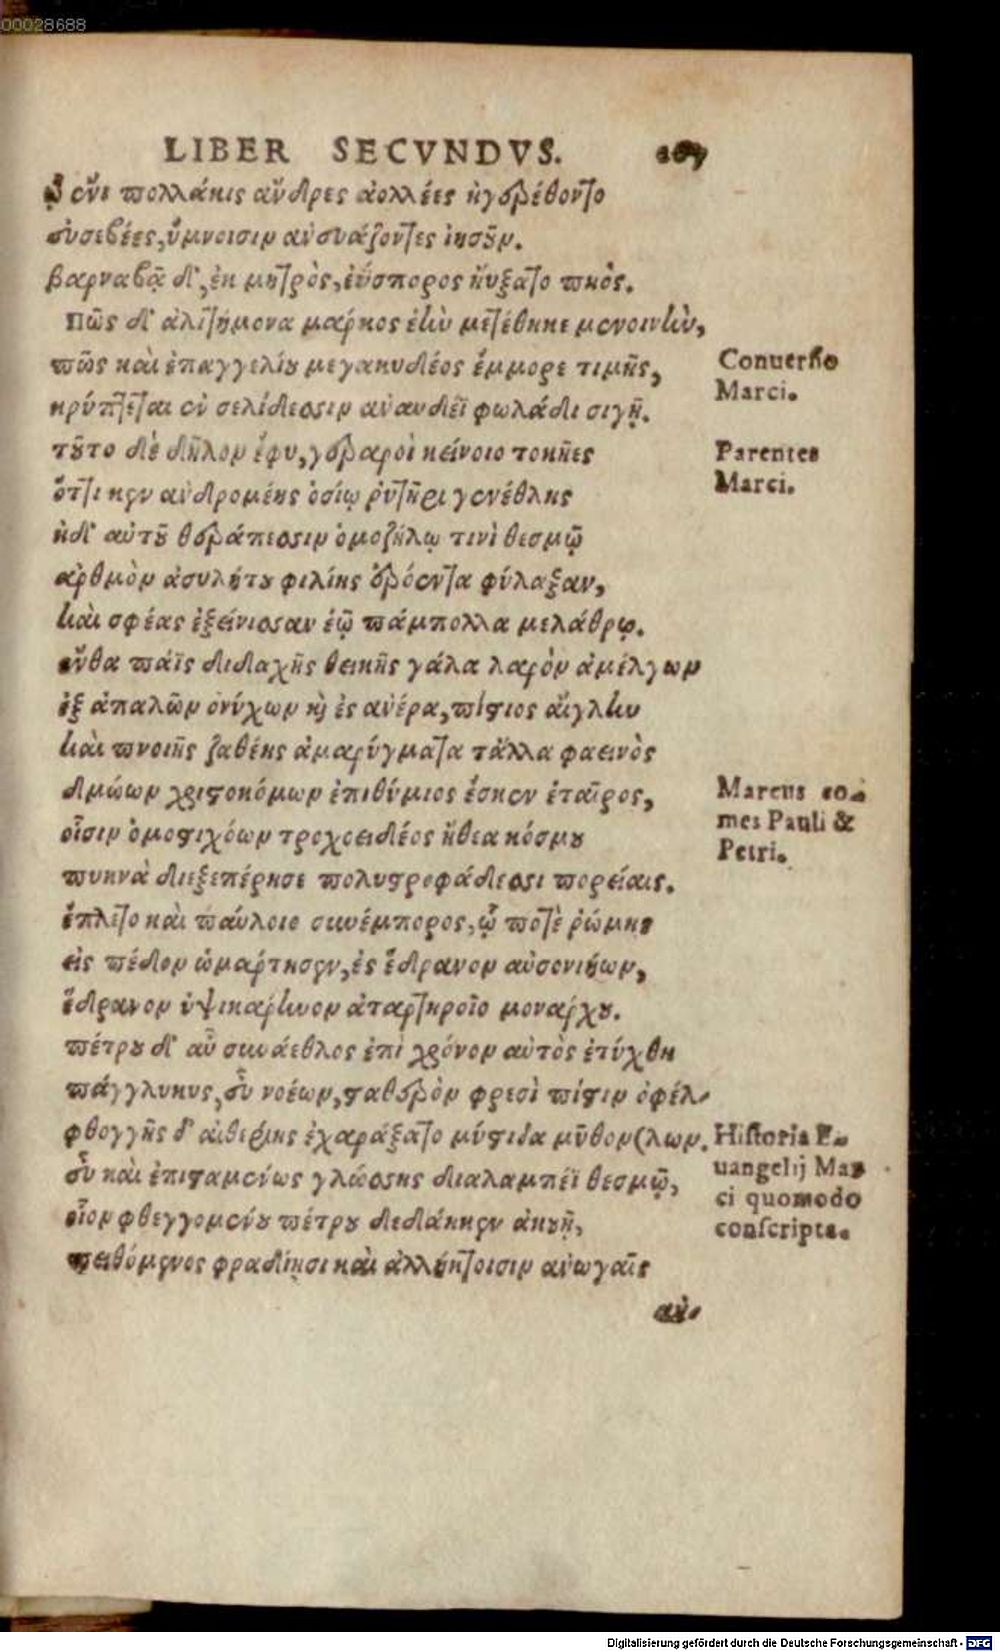 00028688
LIBER SECVNDVS.
ᾧ ἔνι πολλάκις ἄνδρες ἀολλέες ἠγερέθοντο
εὐσεβέες, ὕμνοισιν ἀνευάζοντες ἰησοῦν.
βαρναβᾷ δ', ἐκ μητρὸς, ἐΰσπορος ηὔξατο πηός.
πῶς δ' ἀλιτήμονα μάρκος ἑὴν μετέβηκε μενοινὴν,
πῶς καὶ ἐπαγγελίου μεγακυδέος ἔμμορε τιμῆς,
κρύπτεται ἐν σελίδεσσιν ἀναυδέϊ φωλάδι σιγῇ.
τοῦτο δὲ δῆλον ἔφυ, γεραροὶ κείνοιο τοκῆες
ὅττι κεν ἀνδρομένης ὁσίῳ ῥυτῆρι γενέθλης
ἠδ' αὐτοῦ θεράπεσσιν ὁμοζήλῳ τινὶ θεσμῷ
ἀρθμὸν ἀσυλήτου φιλίης ἐρόεντα φύλαξαν,
καὶ σφέας ἐξείνισσαν ἑῷ πάμπολλα μελάθρῳ.
ἔνθα πάϊς διδαχῆς θεικῆς γάλα λαρὸν ἀμέλγων
ἐξ ἁπαλῶν ὀνύχων καὶ ἐς ἀνέρα, πίστιος αἴγλην
καὶ πνοιῆς ζαθέης ἀμαρύγματα τἄλλα φαεινὸς
δμώων χριστονόμων ἐπιθύμιος ἔσκεν ἑταῖρος,
οἷσιν ὁμοστιχόων τροχοειδέος ἤθεα κόσμου
πυκνὰ διεξεπέρησε πολυστροφάδεσσι πορείαις.
ἔπλετο καὶ παύλοιο συνέμπορος, ᾧ ποτὲ ῥώμης
εἰς πέδον ὡμάρτησεν, ἐς ἕδρανον αὐσονιήων,
ἕδρανον ὑψικάρηνον ἀταρτηροῖο μονάρχου.
πέτρου δ' αὖ συνάεθλος ἐπὶ χρόνον αὐτὸς ἐτύχθη
πάγγλυκυς, εὖ νοέων, σταθερὸν φρεσὶ πίστιν ὀφέλ-
φθογγῆς δ' αἰθερίης ἐχαράξατο μύστιδα μῦθον (λων.
εὖ καὶ ἐπισταμένως γλώσσης διαλαμπέϊ θεσμῷ,
οἷον φθεγγομένου πέτρου δεδάηκεν ἀκουῇ,
πειθόμενος φραδίῃσι καὶ ἀλλήκτοισιν ἀνωγαῖς
Conuersio
Marci.
Parentes
Marci.
Marcus co-
mes Pauli &
Petri.
Historia E-
uangelij Mar
ci quomodo
conscripta.
Digitalisierung gefördert durch die Deutsche Forschungsgemeinschaft - DFG